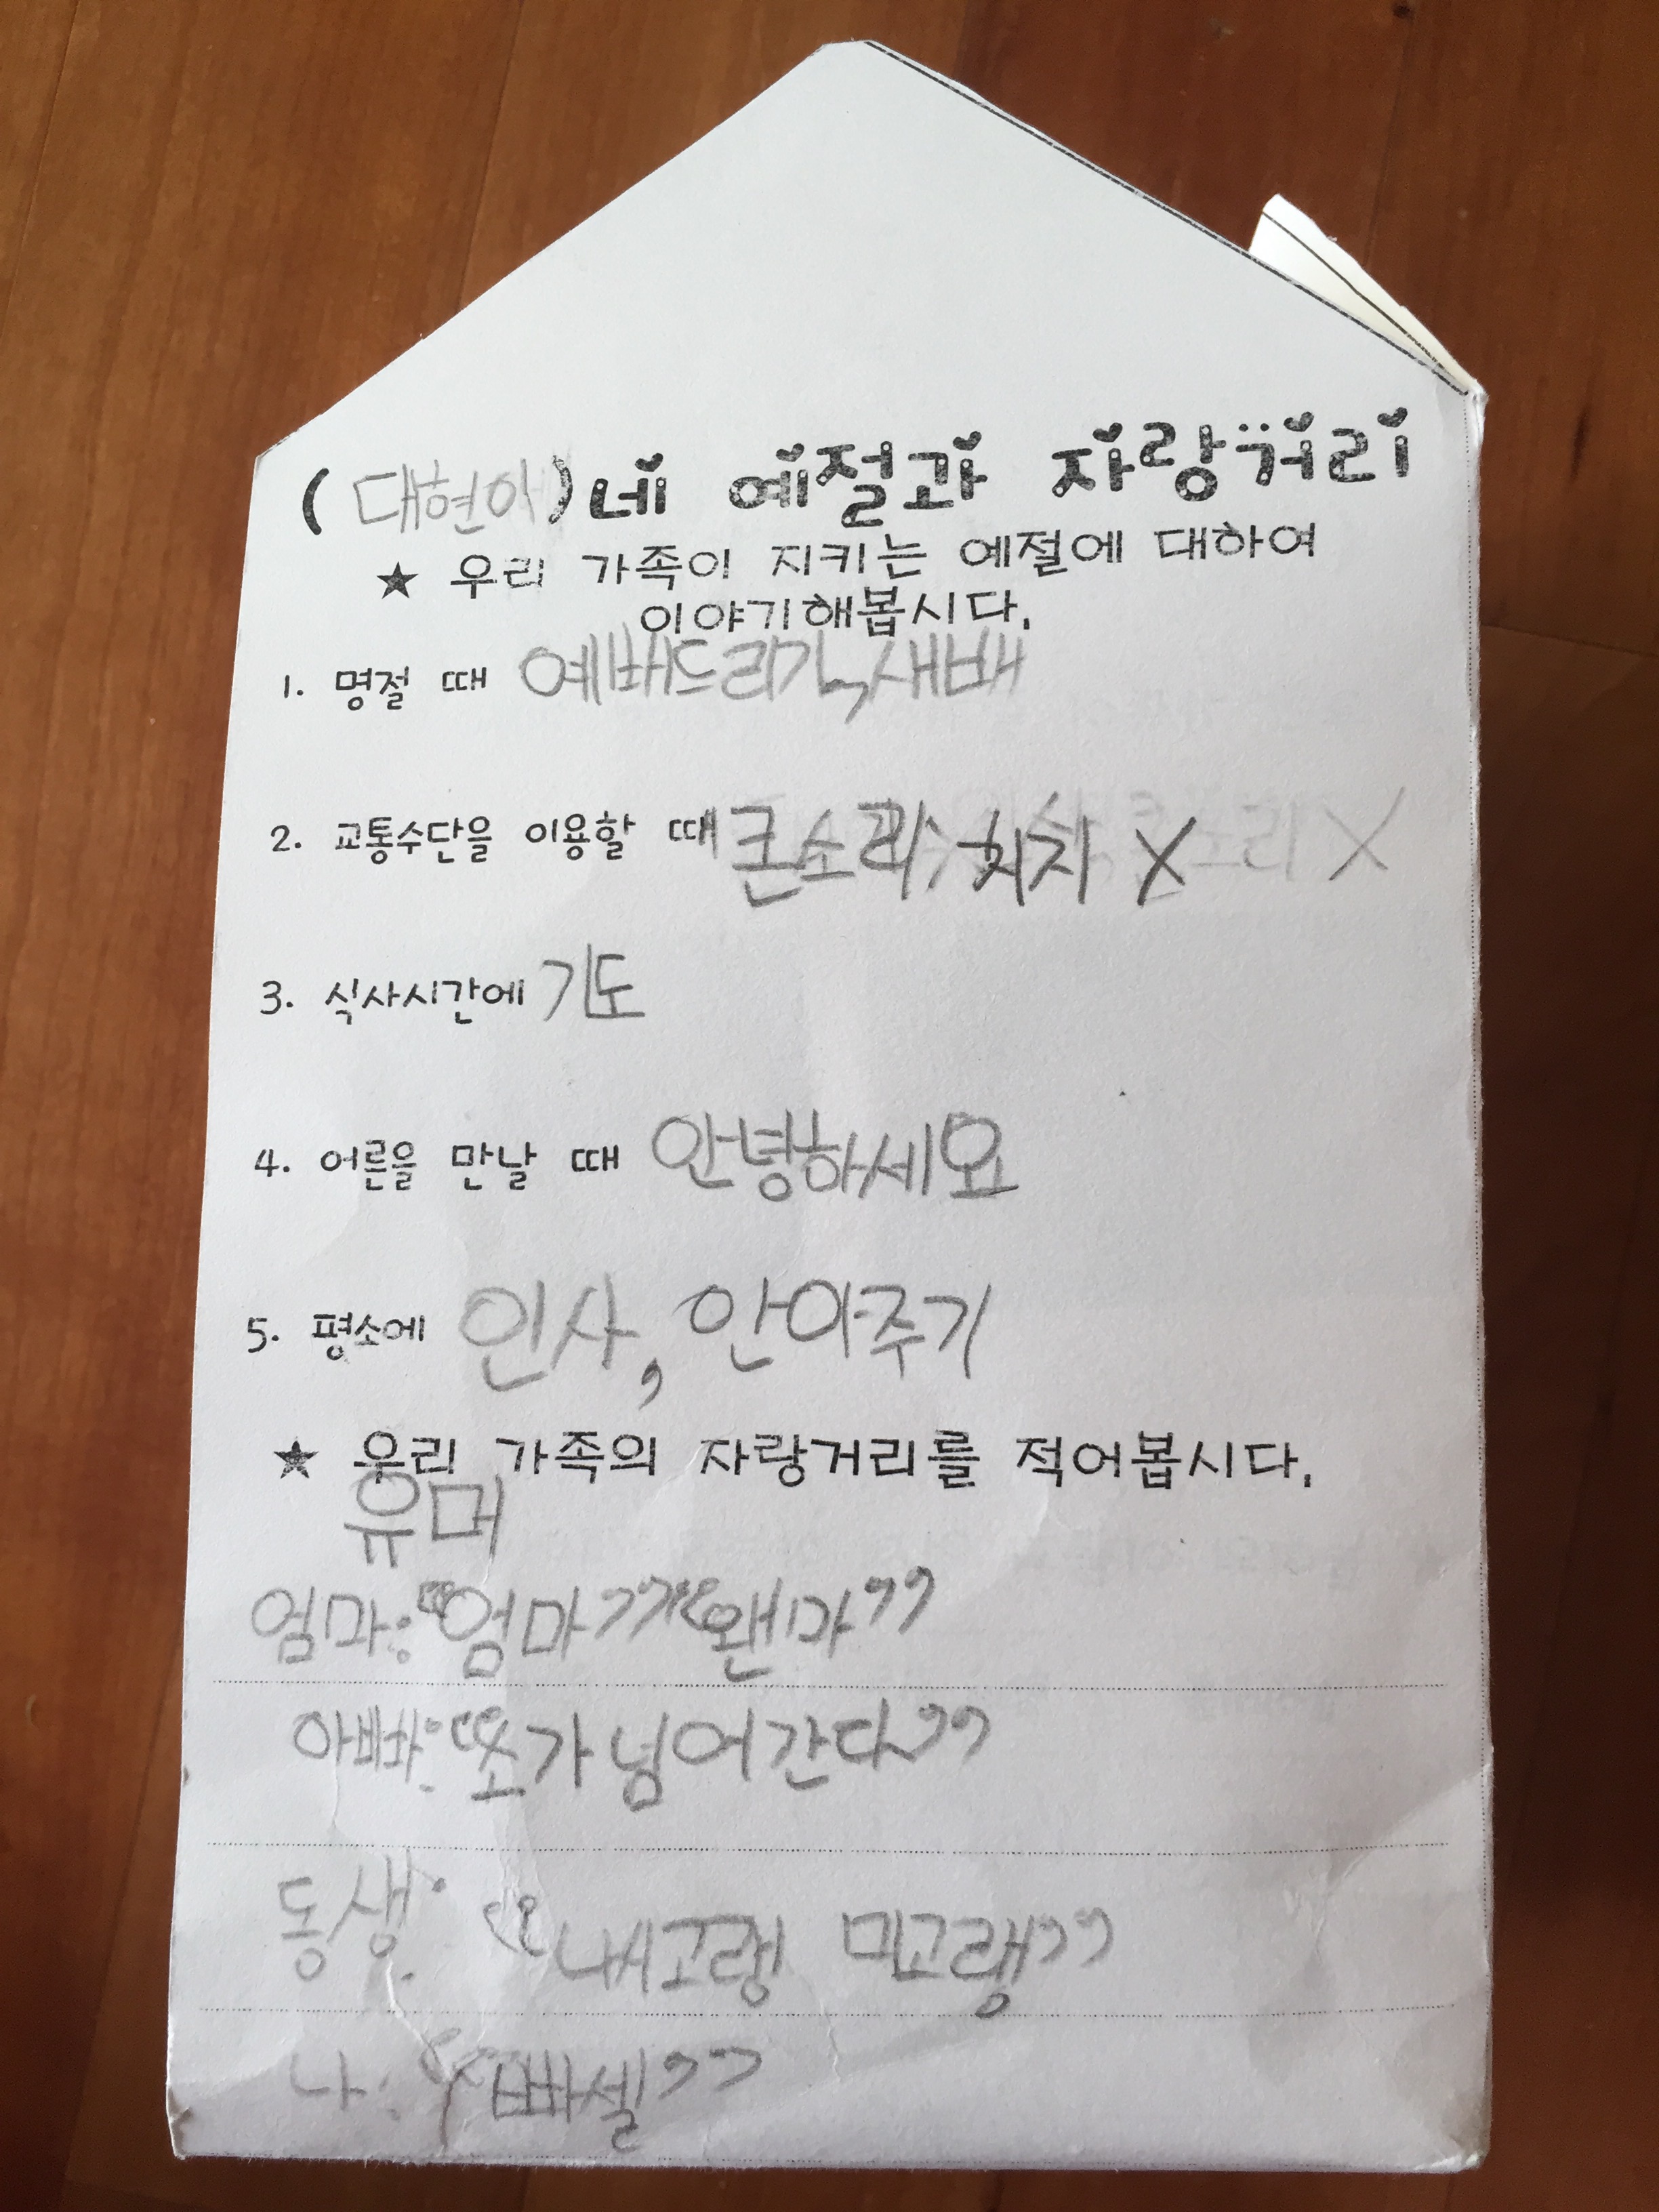 (대현이)네 예절과 자랑거리
★ 우리 가족이 지키는 예절에 대하여
이야기해봅시다.
1. 명절 때 예배드리기, 새배
2. 교통수단을 이용할 때 큰소리 치지 X
3. 식사시간에 기도
4. 어른을 만날 때 안녕하세요
5. 평소에 인사, 안아주기
★ 우리 가족의 자랑거리를 적어봅시다.
유머
엄마: "엄마" "왠마"
아빠: "소가 넘어간다"
동생: "내고랭 미고랭"
나: "빠셀"